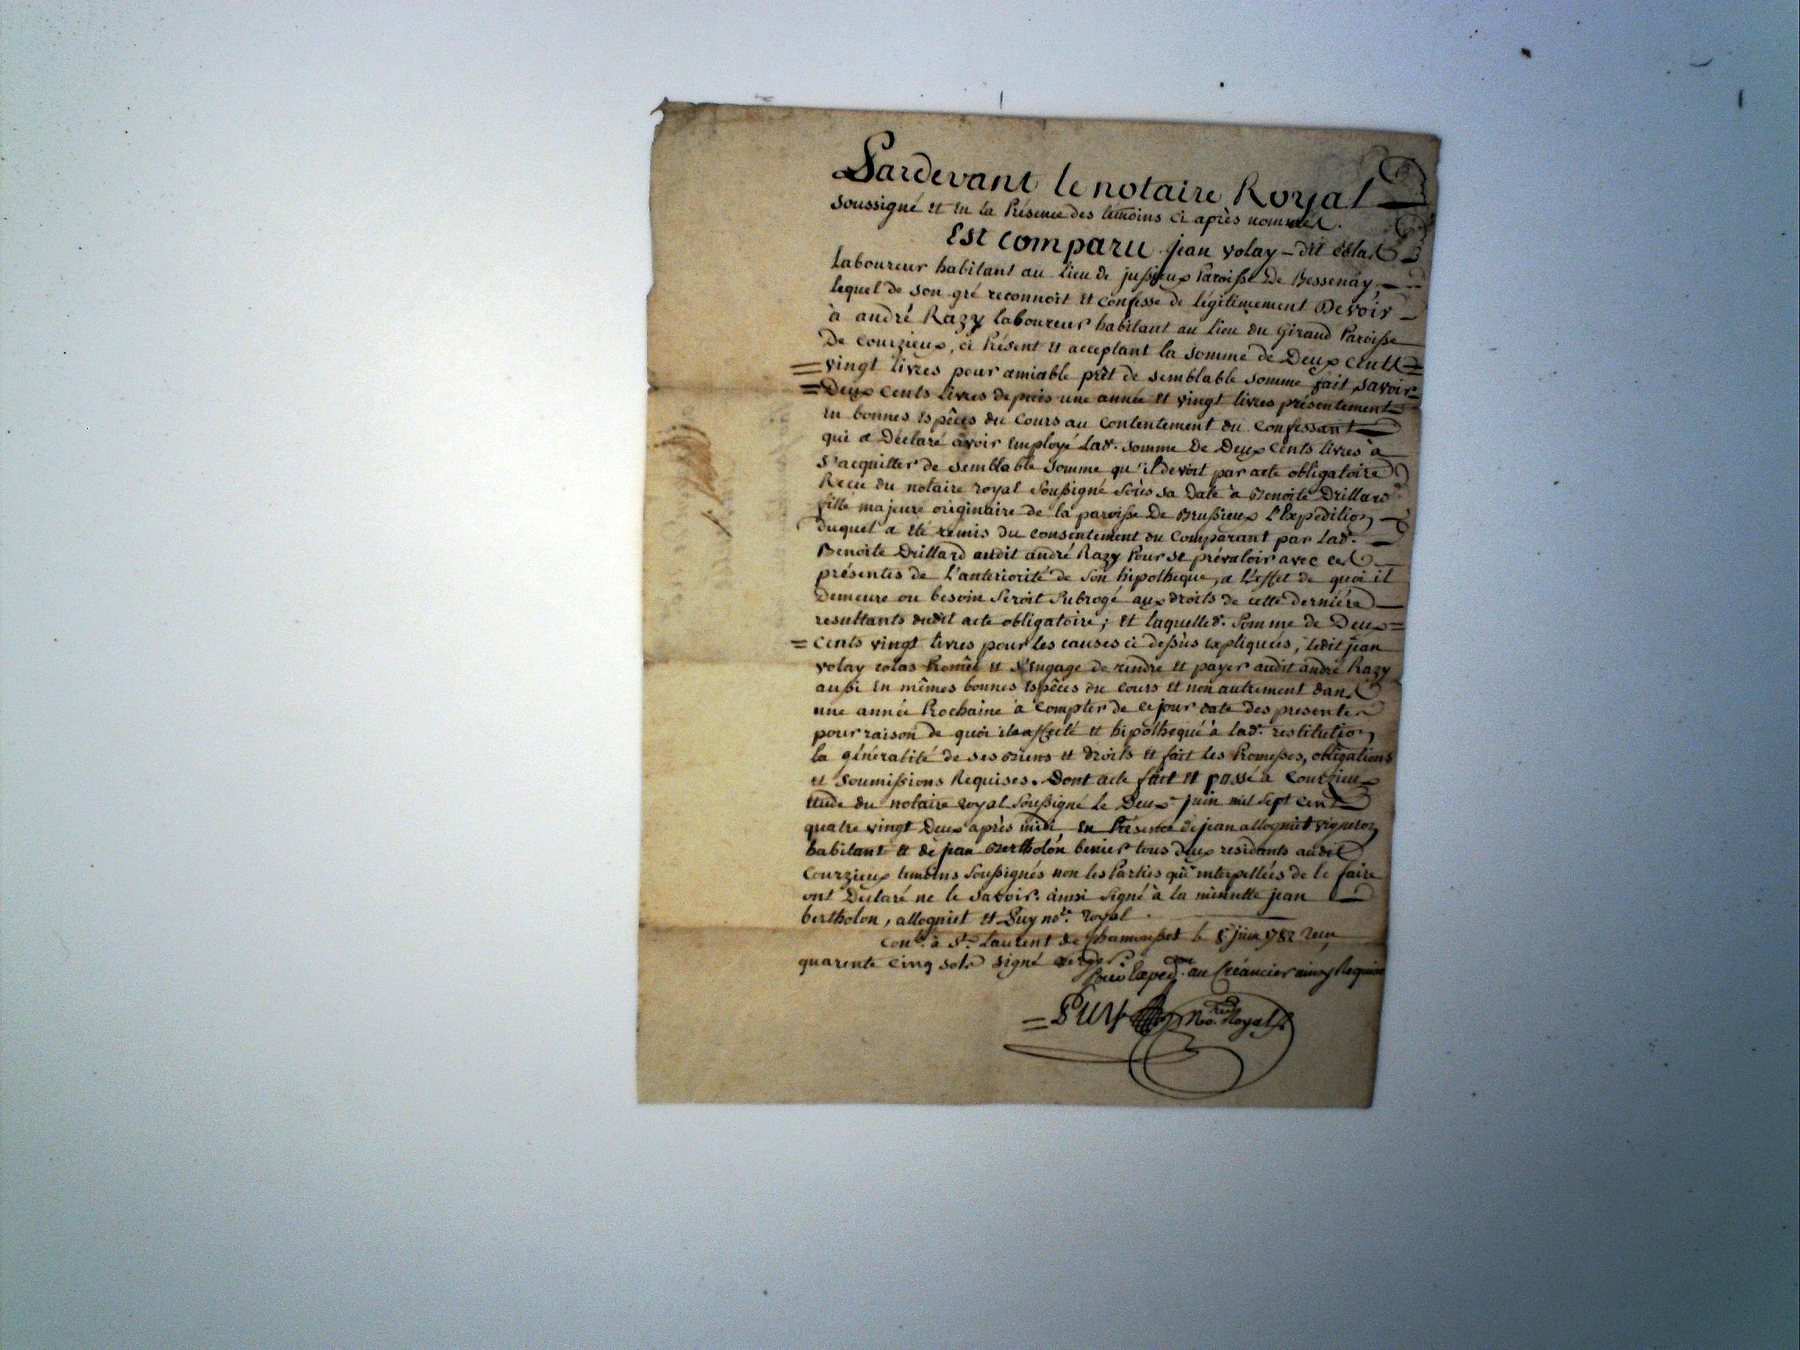 Pardevant le notaire Royal
soussigné et en la Présence des témoins ci après nommés.
Est comparu jean volay - dit Colas
laboureur habitant au lieu de jussieux Paroisse De Bessenay,
lequel de son gré reconnoit et confesse de légitimement Devoir
à andré Razy laboureur habitant au lieu du Giraud Paroisse
De Courzieux, ci Présent et acceptant la somme de Deux cents
vingt livres pour amiable prêt de semblable somme fait savoir
Deux cents livres depuis une année et vingt livres présentement
en bonnes espêces du Cours au contentement du Confessant
qui a Déclaré avoir Employé lade. somme de Deux Cents livres à
s'acquitter de semblable somme qu'il devoit par acte obligatoire
Recu du notaire royal soussigné sous sa date à Benoite Drillard
fille majeure originaire de la paroisse De Brussieux l'Expedition
duquel a été remis du consentement du Comparant par lade.
Benoite Drillard audit andré Razy Pour se prévaloir avec ces
présentes de l'anteriorité de son hipotheque, a l'effet de quoi il
Demeure ou besoin seroit subrogé aux droits de cette dernière
resultants dudit acte obligatoire; et laquelle d. somme de Deux
cents vingt livres pour les causes ci dessus expliquées, ledit jean
volay colas Promet et s'engage de rendre et payer audit andré Razy
aussi en mêmes bonnes espêces du cours et non autrement dans
une année Prochaine à compter de ce jour date des presentes
pour raison de quoi il a affecté et hipothequé à lade. restitution
la généralité de ses Biens et droits et fait les Promesses, obligations
et soumissions Requises. Dont acte fait et passé à Courzieux
étude du notaire royal soussigné le Deux juin mil sept cent
quatre vingt Deux après midi, en Présence de jean allogniet vigneron
habitant et de jean Bertholon benier tous deux residants audit
Courzieux temoins soussignés non les Parties qui interpellées de le faire
ont Déclaré ne le savoir. ainsi signé à la minutte jean
bertholon, allogniet et Puy nore. royal
Conlé. à St. Laurent de Chamousset le 8 juin 1782 Recu
quarente cinq sols signé
Pour Exped.on au Créancier ainsy Requis
Puy Nore. Royal